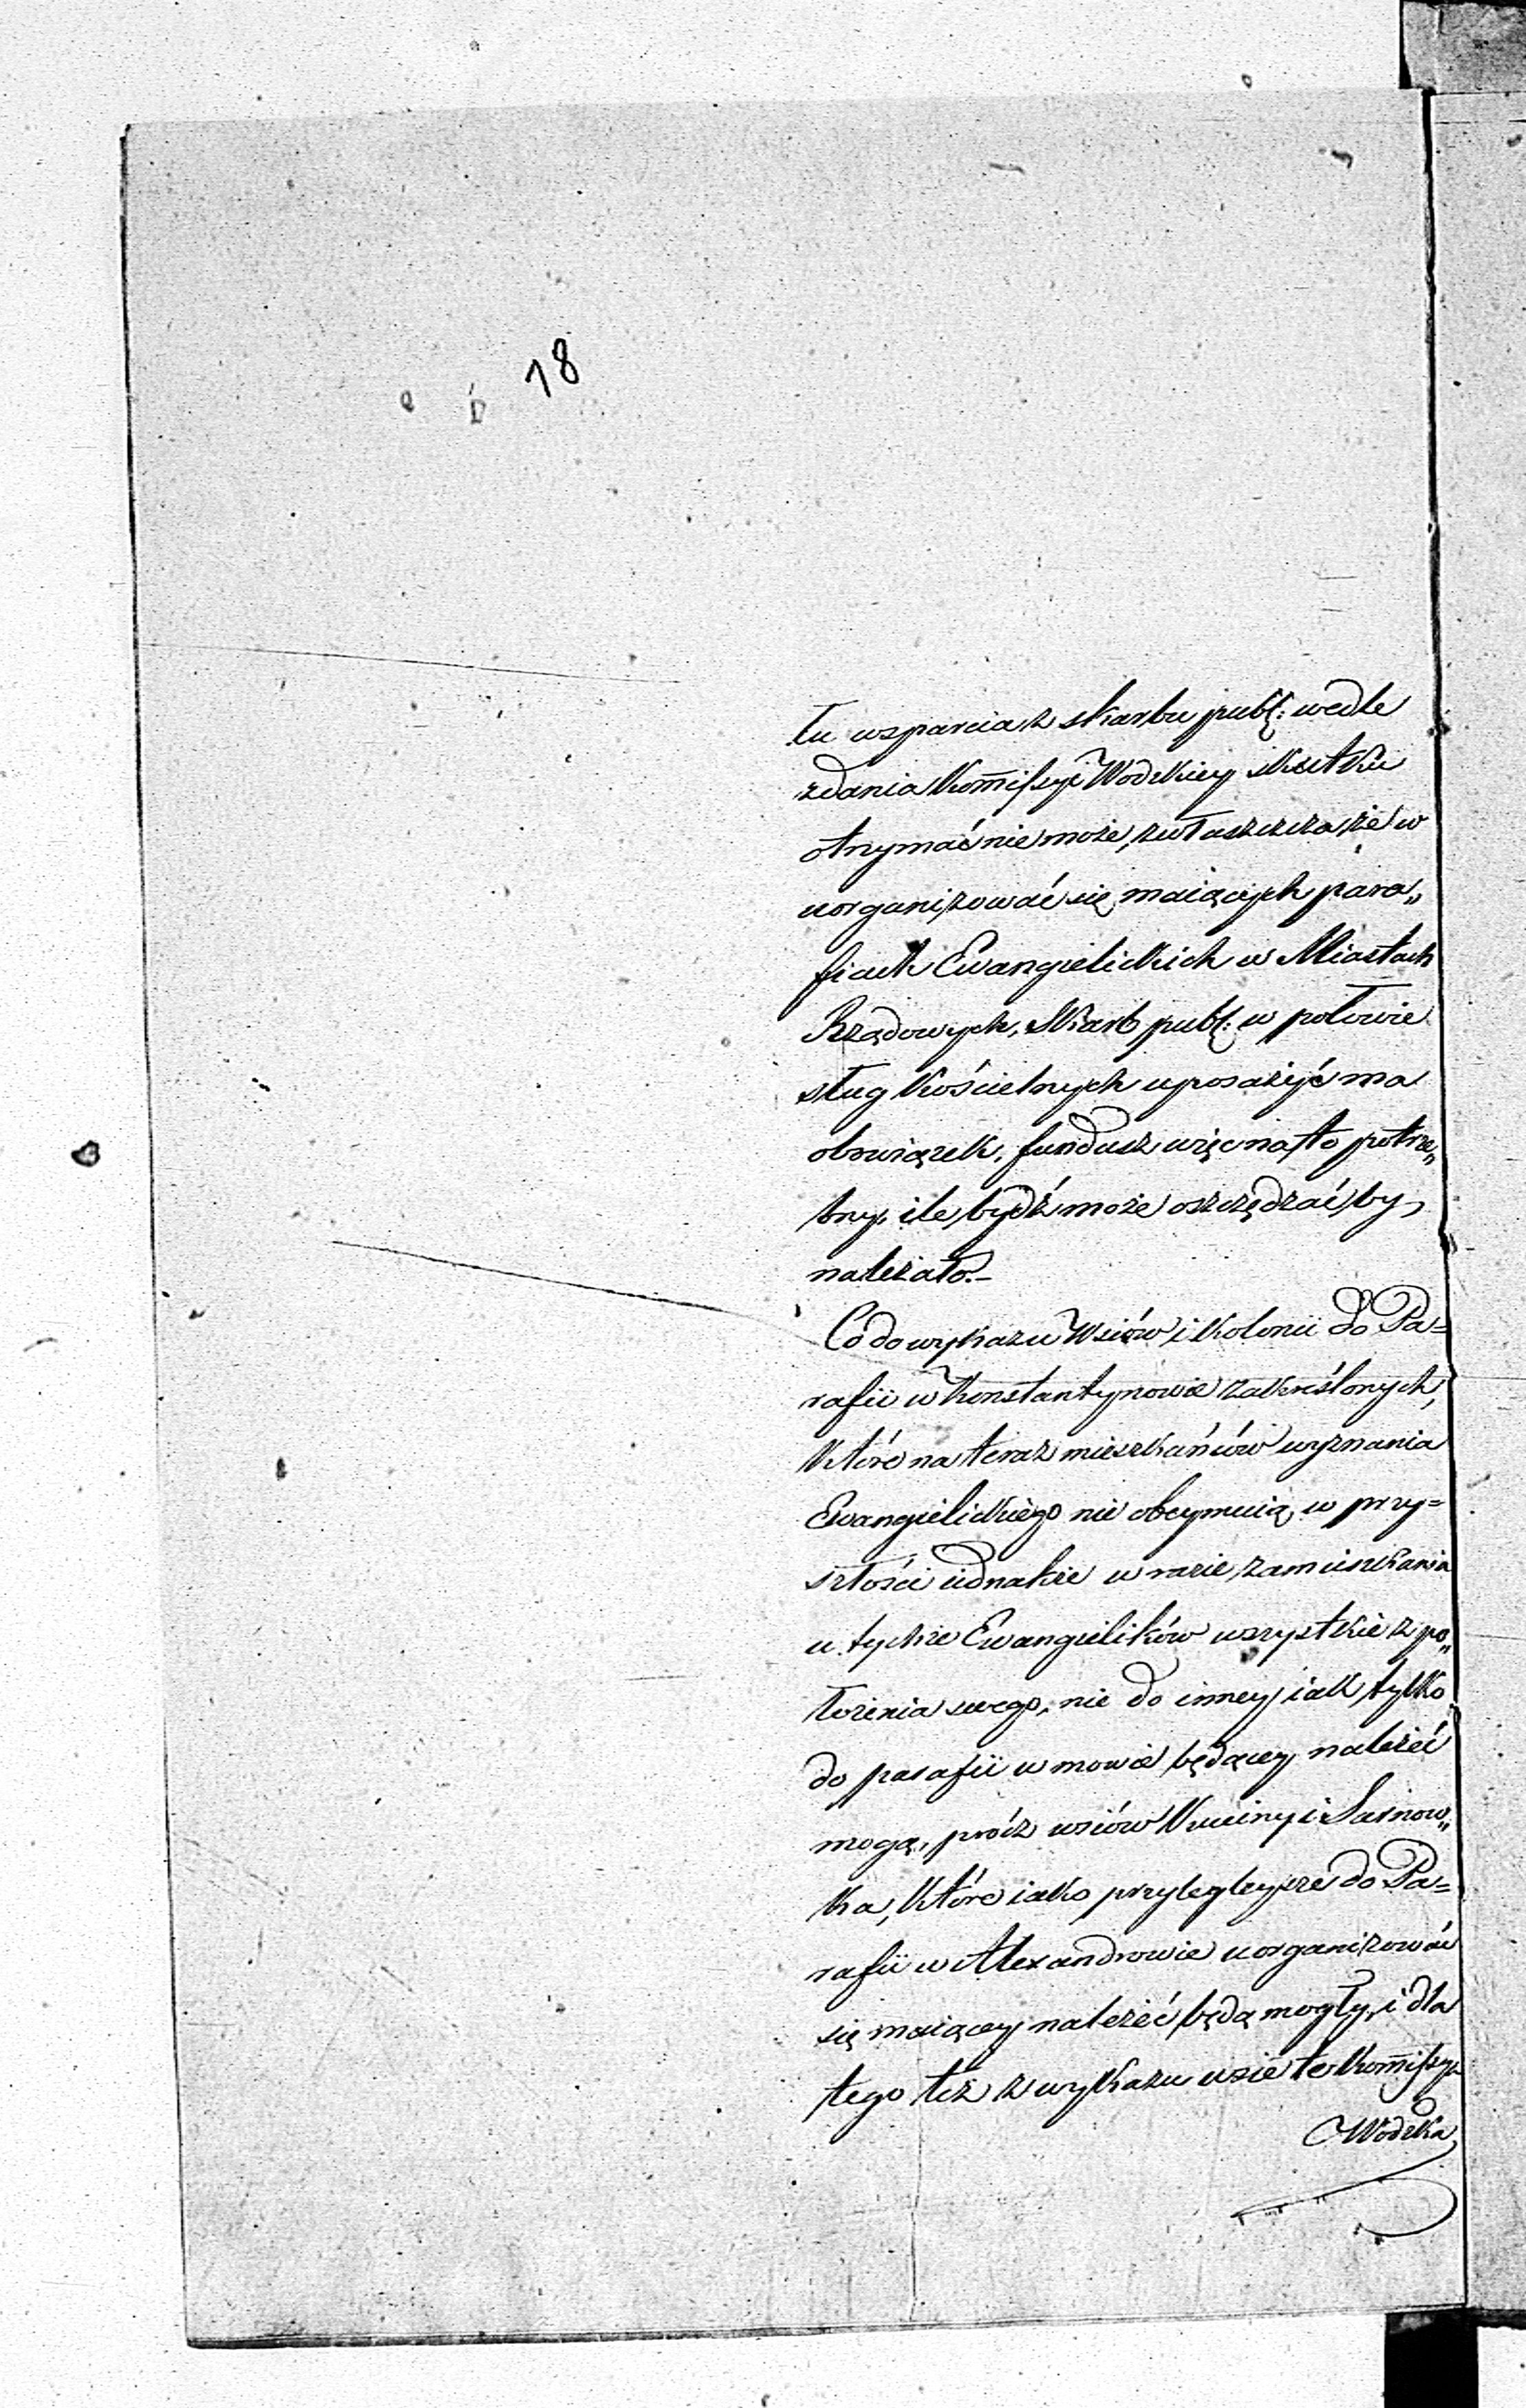 18
tu wsparcia z skarbu publ: wedle
zdania Kom̄issyi Wodzkiey skutku
otrzymać nie może, zwłaszcza że w
uorganizować się maiących para„
fiach Ewangielickich w Miastach
Rządowych, Skarb publ: w połowie
sług Kościelnych uposażyć ma
obowiązek, fundusz więc na to potrze„
bny, ile bydź może oszczędzać by
należało.–
Co do wykazu Wsiów i Kolonii do Pa=
rafii w Konstantynowie zakreślonych,
które na teraz mieszkańców wyznania
Ewangielickiego nie obeymuią, w przy=
szłości iednakże w razie zamieszkania
w tychże Ewangielików wszystkie z po„
łożenia swego, nie do inney iak tylko
do parafii w mowie będącey należeć
mogą, prócz wsiów Kuciny i Sarnow„
ka, które iako przylegleysze do Pa=
rafii w Alexandrowie uorganizować
się maiącey należeć będą mogły, i dla
tego też z wykazu wsie te Kom̄issya
Wodzka